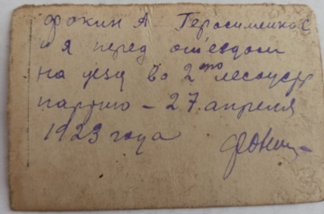 Фокин А Герасименков
и я перед отъездом
на уезд во 2ую лесоустр
партию – 27 апреля
1923 года
Фокин